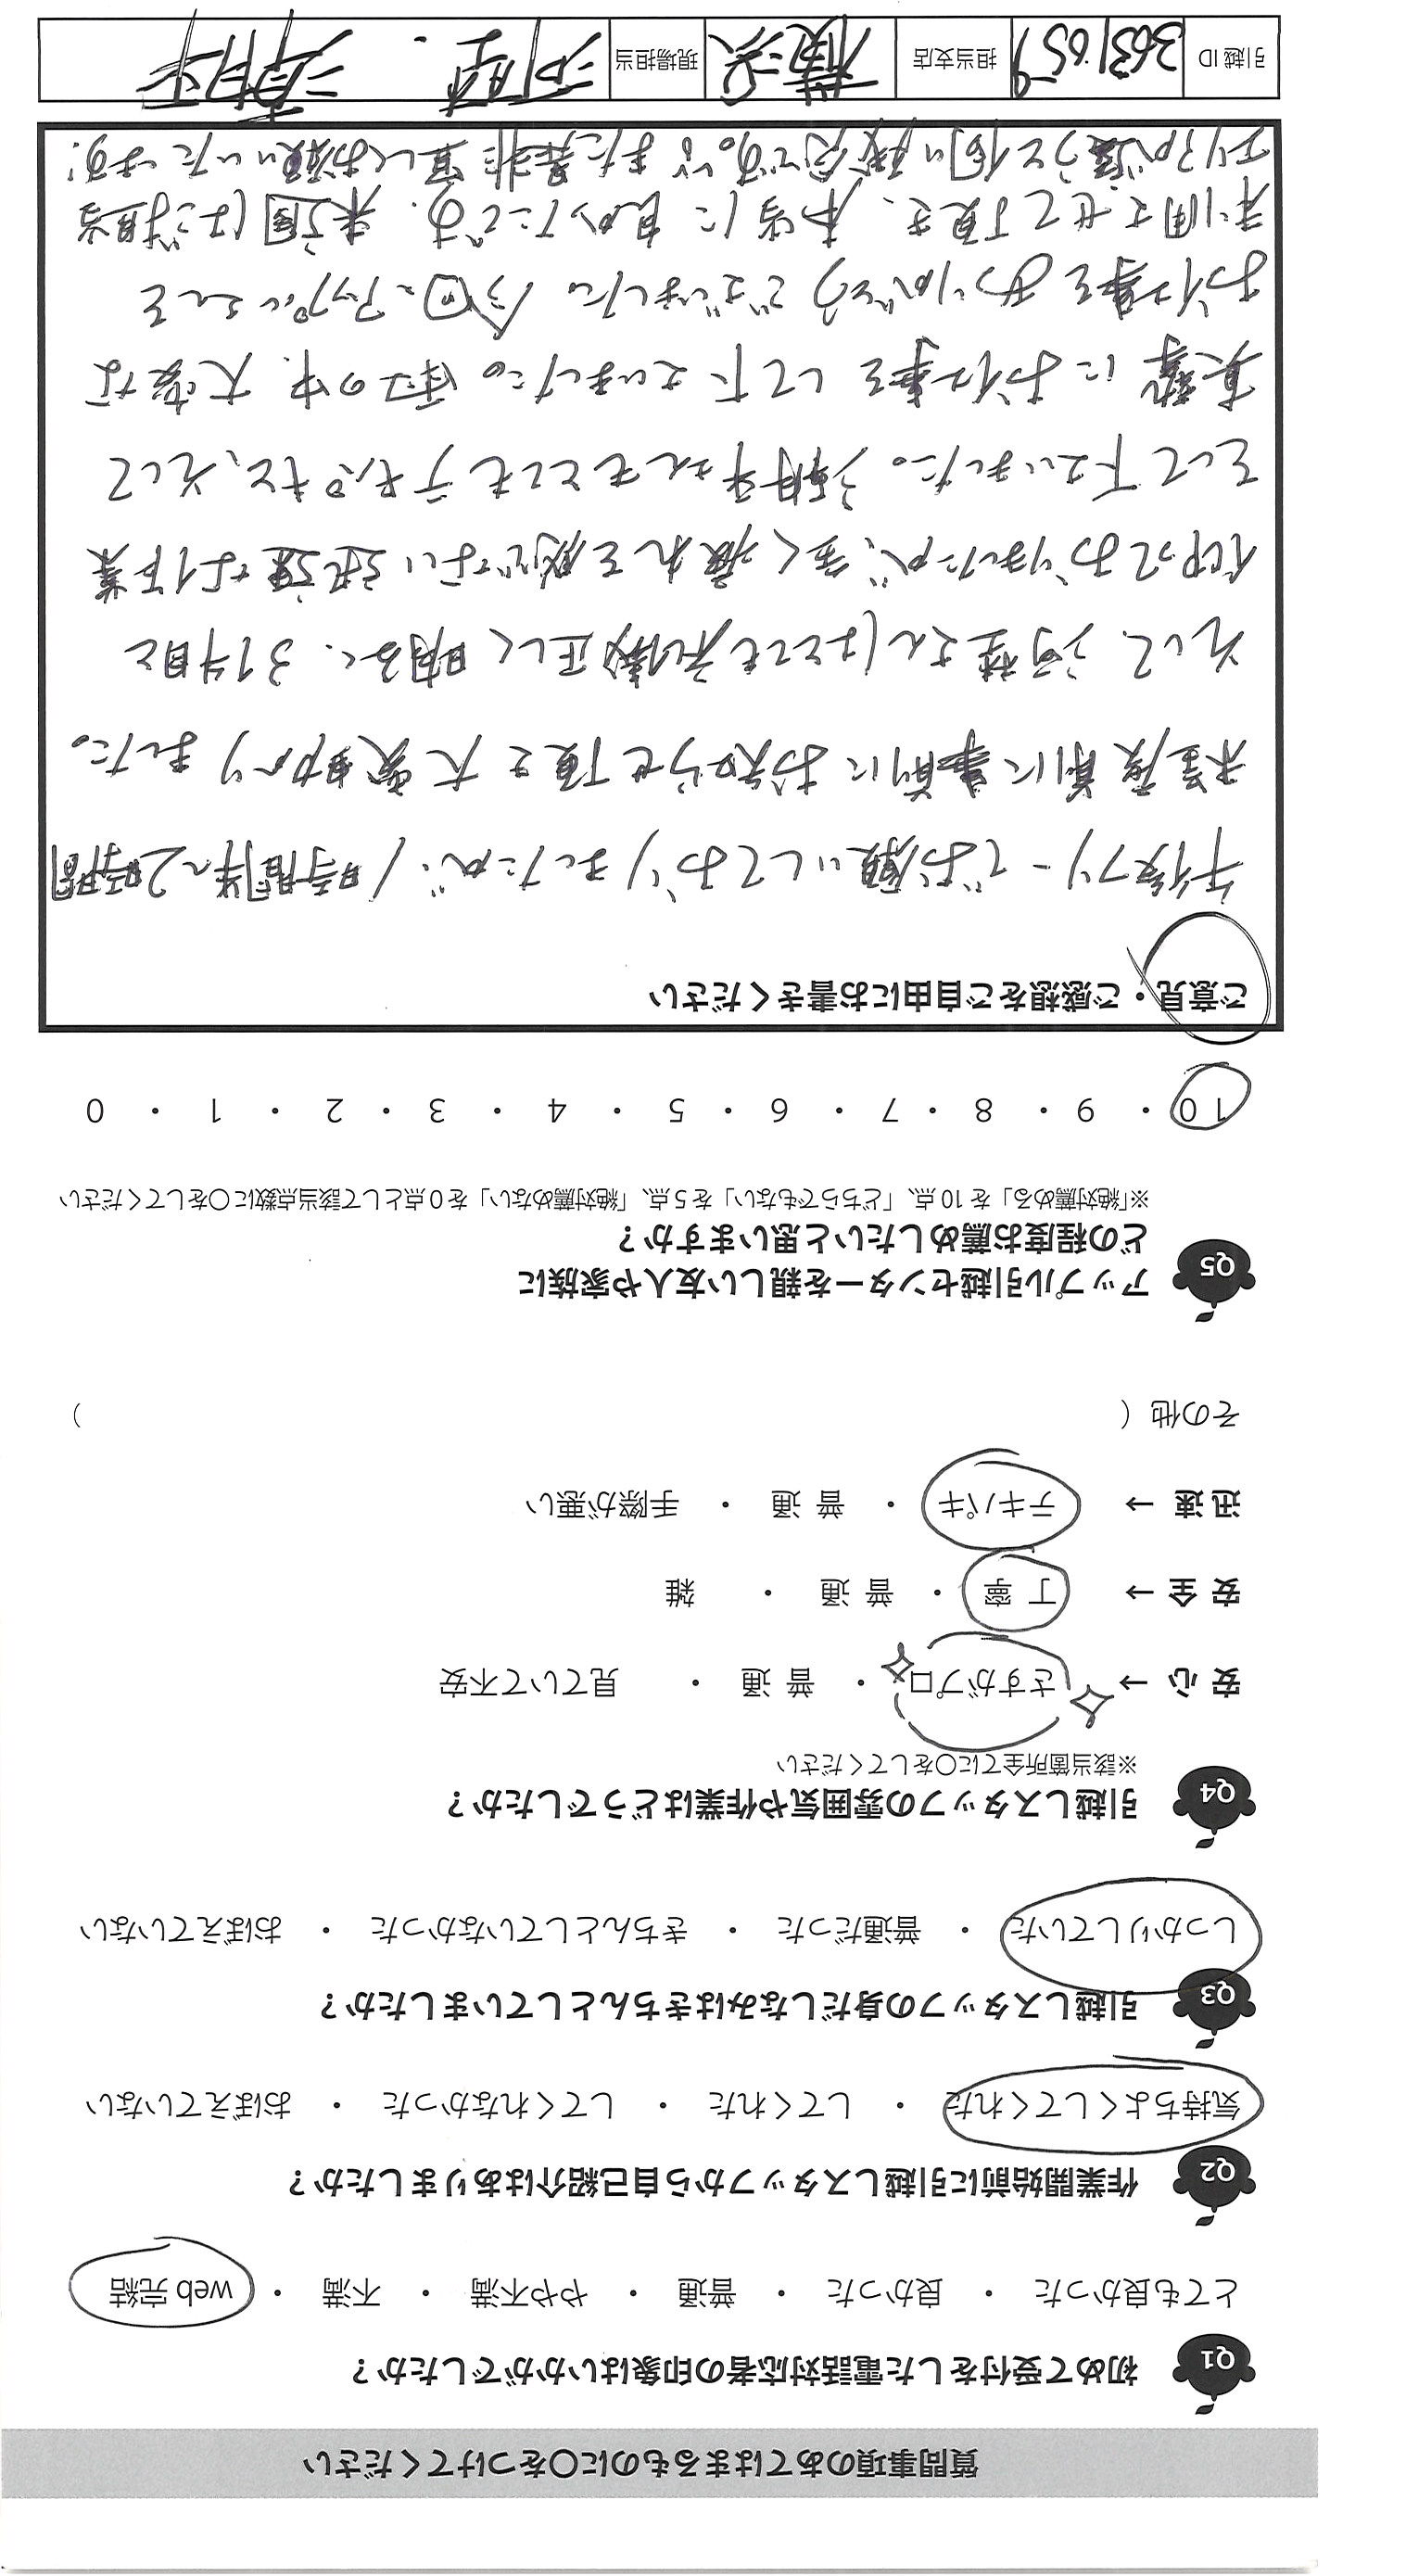 質問事項のあてはまるものに〇をつけてください
Q1 初めて受付をした電話対応者の印象はいかがでしたか？
とても良かった ・ 良かった ・ 普通 ・ やや不満 ・ 不満 ・ web 完結
Q2 作業開始前に引越しスタッフから自己紹介はありましたか？
気持ちよくしてくれた ・ してくれた ・ してくれなかった ・ おぼえていない
Q3 引越しスタッフの身だしなみはきちんとしていましたか？
しっかりしていた ・ 普通だった ・ きちんとしていなかった ・ おぼえていない
Q4 引越しスタッフの雰囲気や作業はどうでしたか？
※該当箇所全てに〇をしてください
安 心 → さすがプロ ・ 普 通 ・ 見ていて不安
安 全 → 丁 寧 ・ 普 通 ・ 雑
迅 速 → テキパキ ・ 普 通 ・ 手際が悪い
その他（ ）
Q5 アップル引越センターを親しい友人や家族に
どの程度お薦めしたいと思いますか？
※「絶対薦める」を 10 点、「どちらでもない」を 5 点、「絶対薦めない」を 0 点として該当点数に〇をしてください
10 ・ 9 ・ 8 ・ 7 ・ 6 ・ 5 ・ 4 ・ 3 ・ 2 ・ 1 ・ 0
ご意見・ご感想をご自由にお書きください
午後フリーでお願いしておりましたが、1時間半〜2時間
程度前に事前にお知らせ頂き大変助かりました。
そして、河埜さんはとても礼儀正しく明るく、3件目と
仰っておりましたが、全く疲れを感じない迅速な作業
をして下さいました。 さんもとてもテキパキと、そして
真摯にお仕事をして下さいました。 の中、大変な
お仕事をありがとうございました。今回、アップルさんを
利用させて頂き、本当に良かったです。来週はご担当
エリアが違うと伺い残念ですが、また是非宜しくお願いいたします!
引越 ID 3631057 担当支店 横浜 現場担当 河埜 .